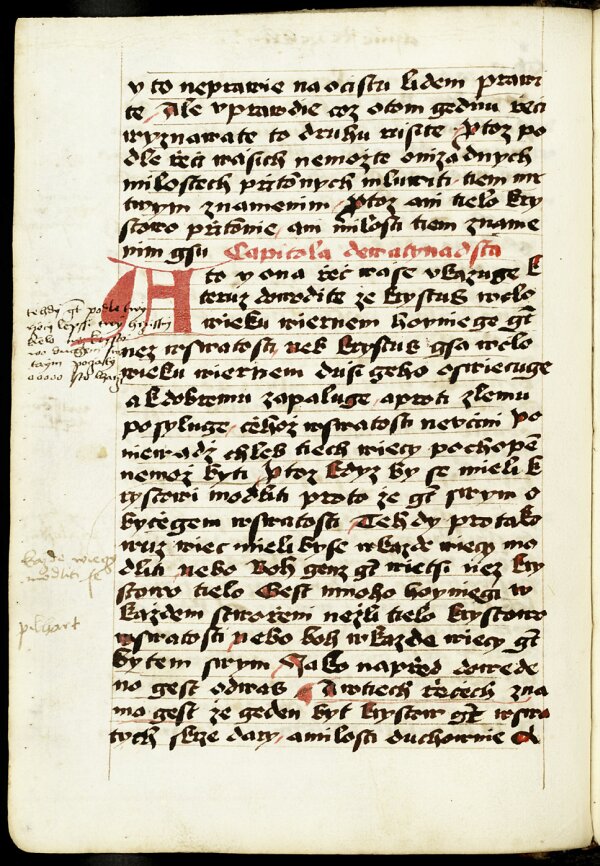 v to neprawie na ocistu lidem prawi
te Ale vprawdie coz otom gednu rzeci
wyznawate to druhu rusite Protoz po
dle rzeczi wasich nemozte o nizadnych
milostech przitomnych mluwiti tiem mr
twym znamenim Protoz ani tielo kry
stowo przitomnie ani milosti tiem zname
nim gsu Capitola dewatynadsta
A to y ona rzecz wase vkazuge k
teruz dowodite ze krystus w clo
wieku wiernem hoyniegi gt
nez w swatosti neb krystus gsa w clo
wieku wiernem dusi geho oswiecuge
a k dobremu zapaluge a proti zlemu
posyluge cehoz w swatosti neucini Po
niewadz chleb tiech wiecy pochopen
nemoz byti Protoz kdyz by se mieli k
rystowi modliti proto ze gt swym o
byczegem w swatosti Tehdy protako
wuz wiec mieli by se w kazde wiecy mo
dliti nebo Boh genz gt wietsi nez kry
stowo tielo Gest mnoho hoyniegi w
kazdem stworzeni nezli tielo krystowo
w swatosti nebo boh w kazde wiecy gt
bytem swym Jako naprzed dowede
no gest odwas A w tiech rzecech zna
mo gest ze geden byt krystow gt w swa
tych skrze dary a milosti duchownie A
tehdy gt podle twy
kazde wiecy
modliti se
pikhart